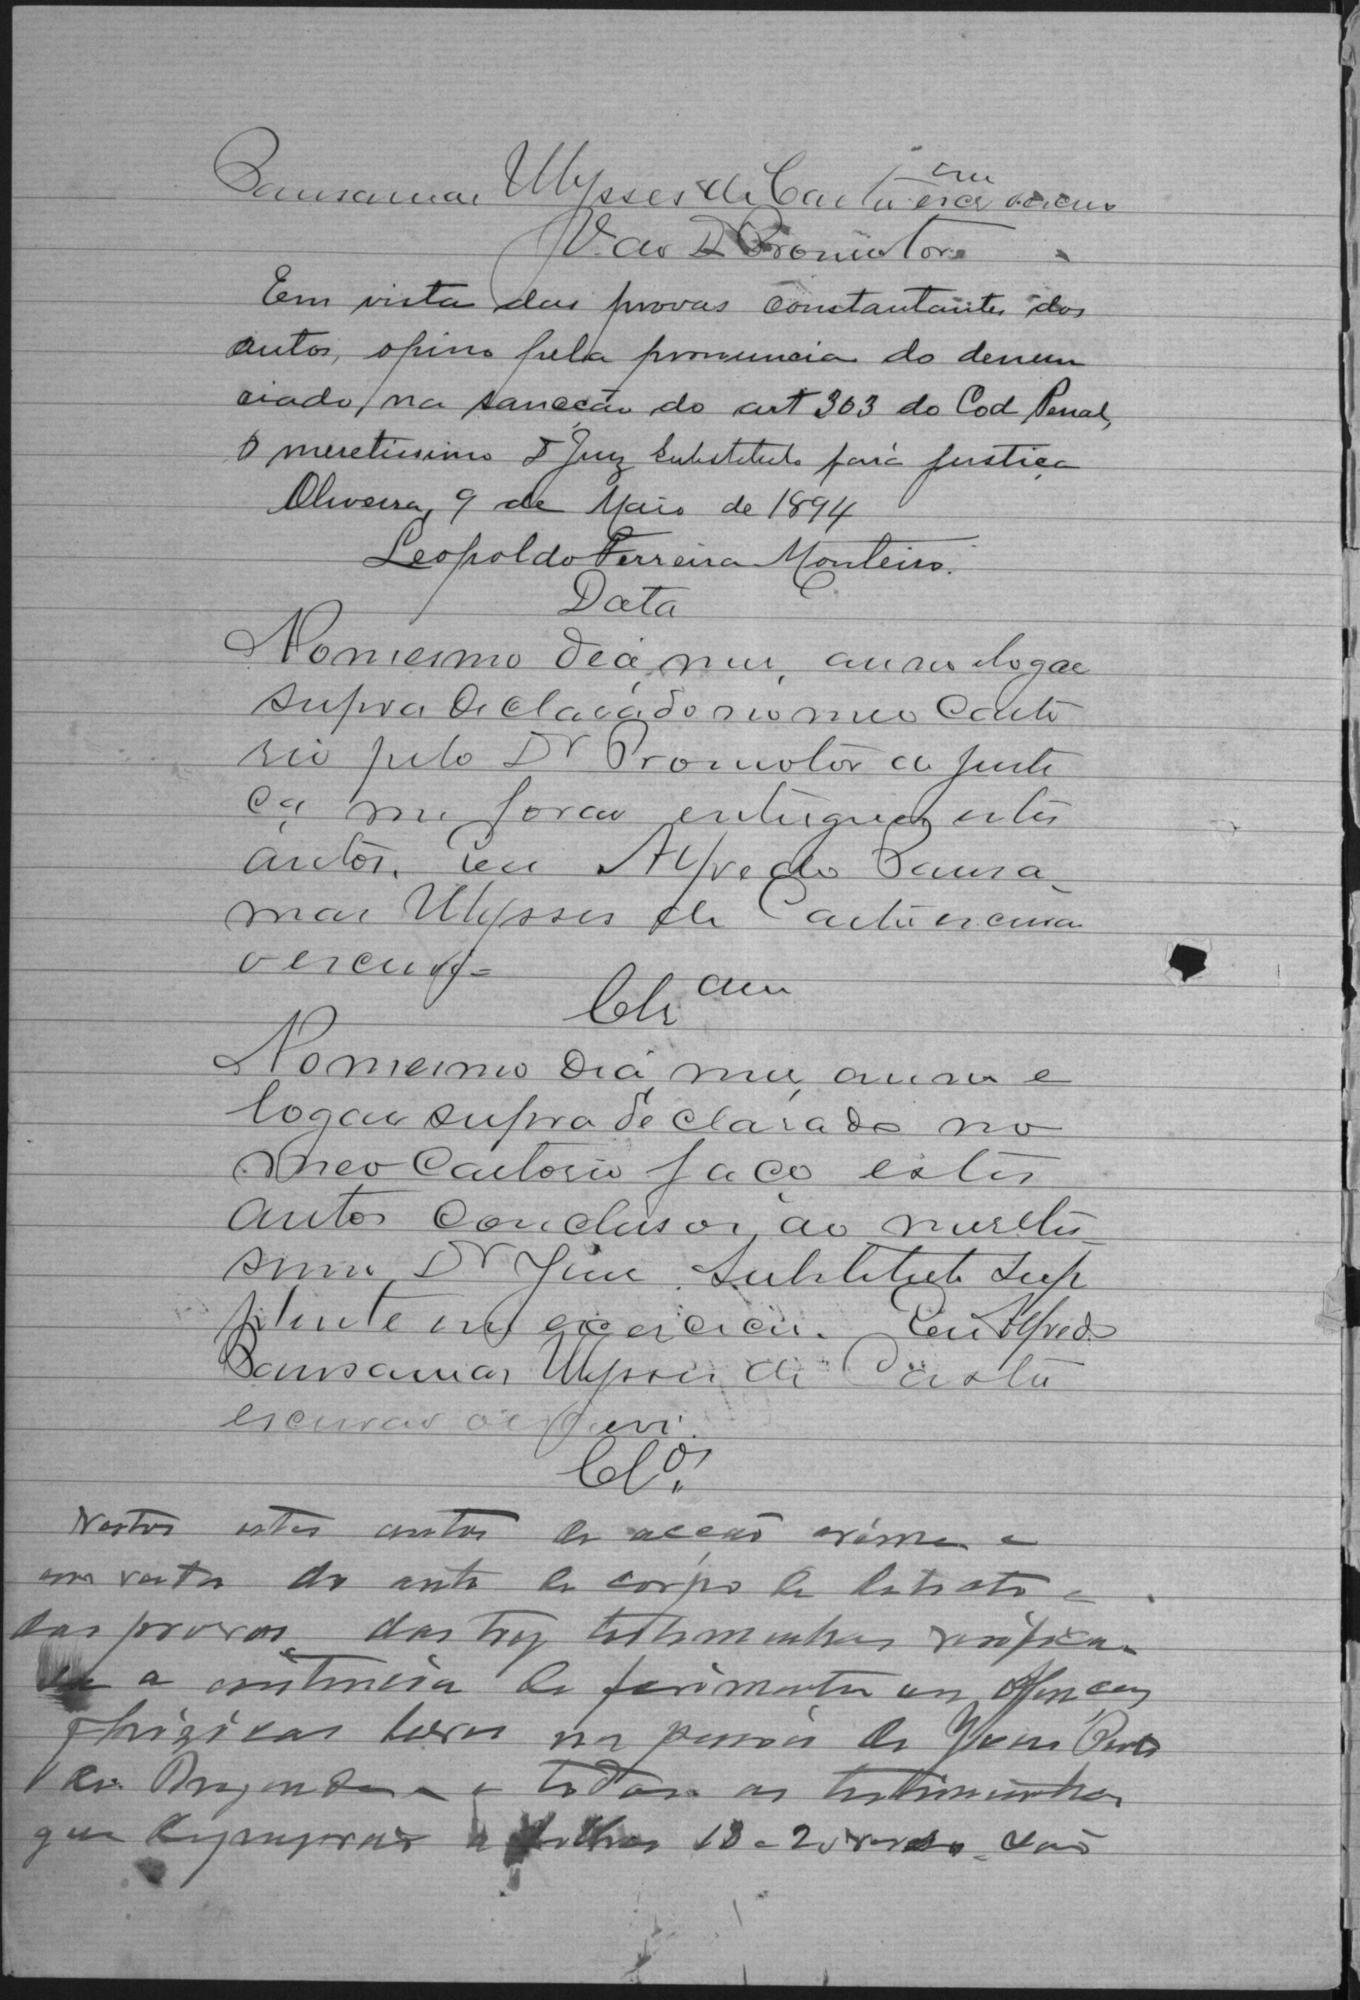 Pausamar Ulysses de Castro escrivão
V. ao Dr Promotor
Em vista das provas constantantes dos
autos, opino pela pronuncia do denun
ciado, na sancção do art 303 do Cod Penal,
O meretissimo Dr Juiz Substituto fará justiça
Oliveira, 9 de Maio de 1894
Leopoldo Ferreira Monteiro.
Data
No mesmo dia, mez, anno e logar
supra declarado no meo Carto
rio pelo Dr Promotor da Justi
ça me forão entregues estes
autos. Eu Alfredo Pausa-
mar Ulysses de Castro escrivão
o escrevi =
Clsam
No mesmo dia, mez, anno e
logar supra declarado no
meo Cartorio faço estes
autos conclusos, ao meretis-
simo Dr Juiz Substituto Sup
plente em exercicio. Eu Alfredo
Pausamar Ulysses de Castro
escrivão o escrevi.
Clos.
Vestos estes autos de acção crime e
em vesta do auto de corpo de delicto e
das provas das trez testemunhas verifica-
se a existencia de ferimentos ou offenças
phizicas leves na pessoa de
de e todas as testemunhas
que depuzerão a folhas 18 a 20 verso são